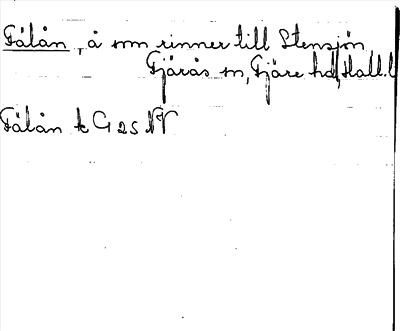 Fålån, å som rinner till Stensjön
Fjärås sn, Fjäre hd, Hall. l
Fålån k G 25 NV